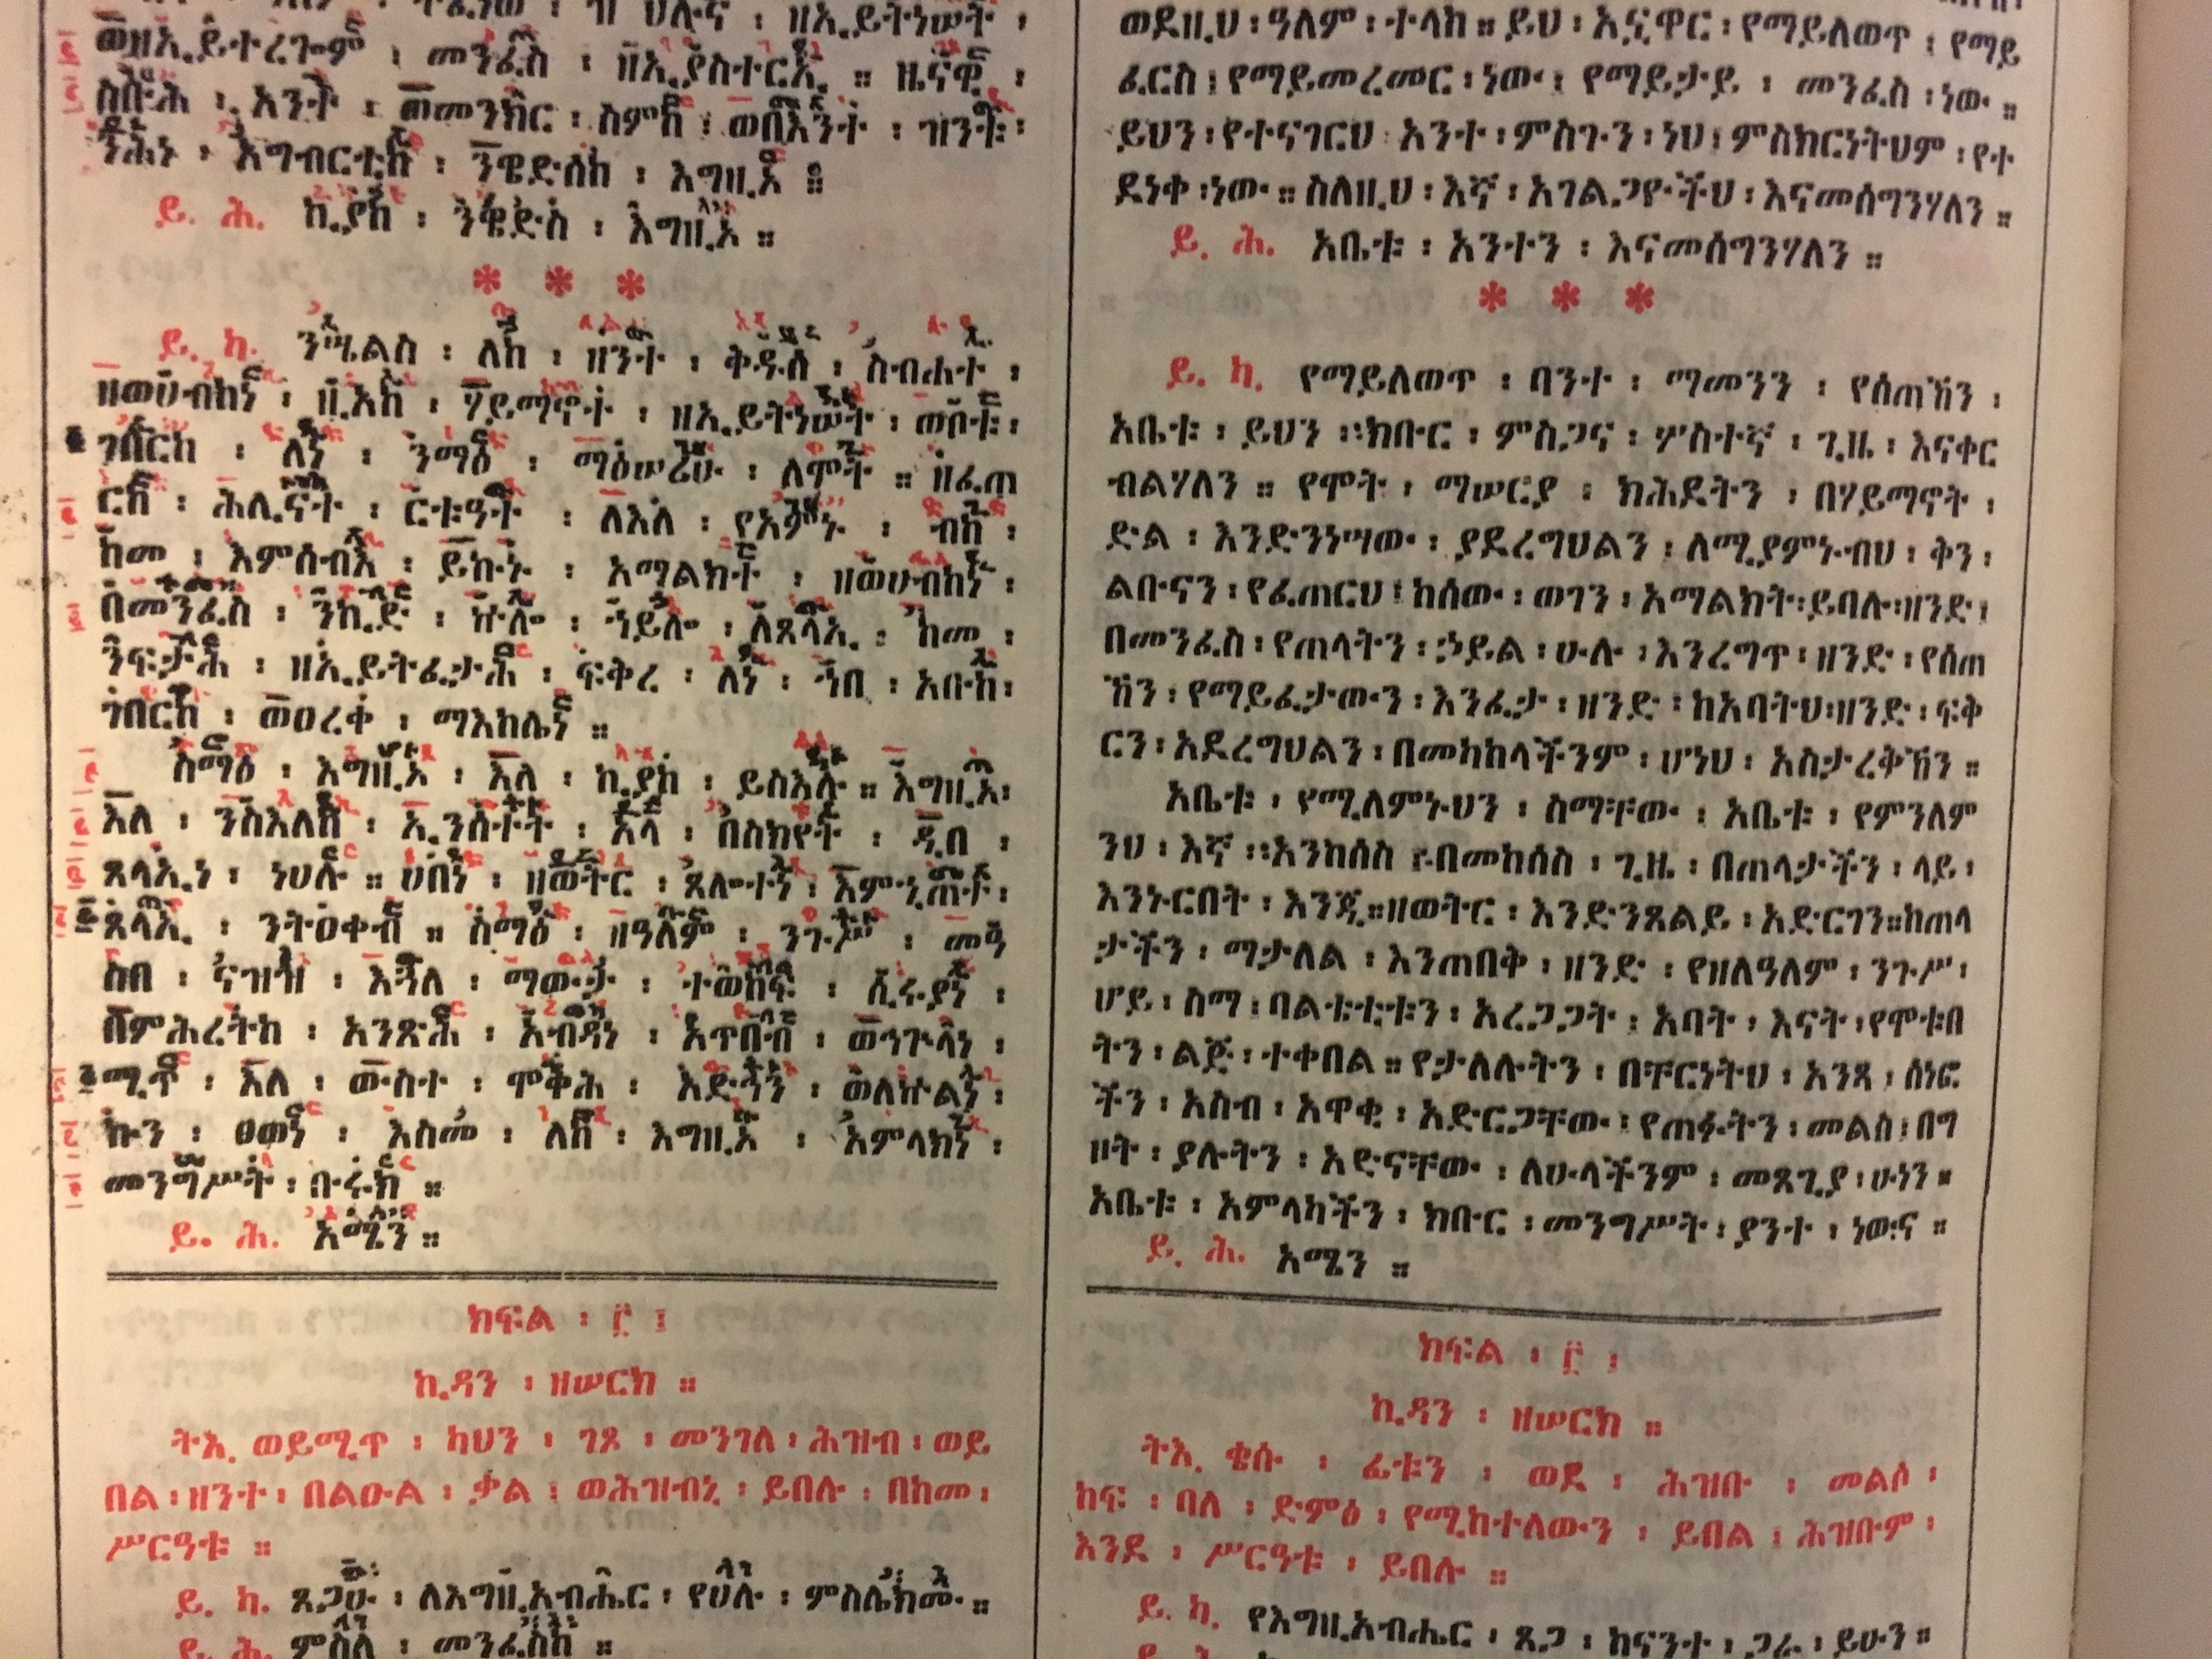 ወዘኢይተረጐም ፡ መንፈስ ፡ ዘኢያስተርኢ ። ዜናዊ ፡
ስቡሕ ፡ አንተ ፡ ወመንክር ፡ ስምከ ፡ ወበእንተ ፡ ዝንቱ ፡
ንሕነ ፡ አግብርቲከ ፡ ንዌድሰከ ፡ እግዚኦ ።
ይ. ሕ. ኪያከ ፡ ንዌድስ ፡ እግዚኦ ።
* * *
ይ. ካ. ንሤልስ ፡ ለከ ፡ ዘንተ ፡ ቅዱሰ ፡ ስብሐተ ፡
ዘወሀብከነ ፡ ዚአከ ፡ ሃይማኖተ ፡ ዘኢይትነሠት ፡ ወቦቱ ፡
ገበርከ ፡ ለነ ፡ ንማዕ ፡ ማዕሠሪሁ ፡ ለሞት ። ዘፈጠ
ርከ ፡ ሕሊናተ ፡ ርቱዓተ ፡ ለእለ ፡ የአምኑ ፡ ብከ ፡
ከመ ፡ እምሰብእ ፡ ይኩኑ ፡ አማልክተ ፡ ዘወሀብከነ ፡
በመንፈስ ፡ ንኪድ ፡ ኵሎ ፡ ኀይሎ ፡ ለጸላኢ ፡ ከመ ፡
ንፍታሕ ፡ ዘኢይትፈታሕ ፡ ፍቅረ ፡ ለነ ፡ ኀበ ፡ አቡከ ፡
ገበርከ ፡ ወዐረቀ ፡ ማእከሌነ ።
ስማዕ ፡ እግዚኦ ፡ እለ ፡ ኪያከ ፡ ይስእሉ ። እግዚኦ ፡
እለ ፡ ንስእለከ ፡ ኢንሰትት ፡ አላ ፡ በስክየት ፡ ዲበ ፡
ጸላኢነ ፡ ነሀሉ ። ሀበነ ፡ ዘወትር ፡ ጸሎተነ ፡ እምኂጠተ ፡
ጸላኢ ፡ ንትዐቀብ ። ስማዕ ፡ ዘዓለም ፡ ንጉሥ ፡ መዓ
ስበ ፡ ናዝዝ ፡ እጓለ ፡ ማውታ ፡ ተወከፍ ፡ ሂሩያነ ፡
በምሕረትከ ፡ አንጽሕ ፡ አብዳነ ፡ አጥበብ ፡ ወኅጕላነ ፡
ሚጥ ፡ እለ ፡ ውስተ ፡ ሞቅሕ ፡ አድኅን ፡ ወለኵልነ ፡
ኩን ፡ ፀወነ ፡ እስመ ፡ ለከ ፡ እግዚኦ ፡ አምላክነ ፡
መንግሥት ፡ ቡሩክ ።
ይ. ሕ. አሜን ።
ክፍል ፡ ፫ ፤
ኪዳን ፡ ዘሠርክ ።
ትእ. ወይሚጥ ፡ ካህን ፡ ገጾ ፡ መንገለ ፡ ሕዝብ ፡ ወይ
በል ፡ ዘንተ ፡ በልዑል ፡ ቃል ፡ ወሕዝብኒ ፡ ይበሉ ፡ በከመ ፡
ሥርዓቱ ።
ይ. ካ. ጸጋሁ ፡ ለእግዚአብሔር ፡ የሀሉ ፡ ምስሌክሙ ።
ይ. ሕ. ምስለ ፡ መንፈስከ ።
ወደዚህ ፡ ዓለም ፡ ተላከ ። ይህ ፡ አኗኗር ፡ የማይለወጥ ፤ የማይ
ፈርስ ፤ የማይመረመር ፡ ነው ፤ የማይታይ ፡ መንፈስ ፡ ነው ።
ይህን ፡ የተናገርህ ፡ አንተ ፡ ምስጉን ፡ ነህ ፤ ምስክርነትህም ፡ የተ
ደነቀ ፡ ነው ። ስለዚህ ፡ እኛ ፡ አገልጋዮችህ ፡ እናመሰግንሃለን ።
ይ. ሕ. አቤቱ ፡ አንተን ፡ እናመሰግንሃለን ።
* * *
ይ. ካ. የማይለወጥ ፡ በንተ ፡ ማመንን ፡ የሰጠኸን ፡
አቤቱ ፡ ይህን ፡ ክቡር ፡ ምስጋና ፡ ሦስተኛ ፡ ጊዜ ፡ እናቀር
ብልሃለን ። የሞት ፡ ማሠርያ ፡ ክሕደትን ፡ በሃይማኖት ፡
ድል ፡ እንድንነሣው ፡ ያደረግህልን ፤ ለሚያምኑብህ ፡ ቅን ፡
ልቡናን ፡ የፈጠርህ ፤ ከሰው ፡ ወገን ፡ አማልክት ፡ ይባሉ ፡ ዘንድ ፤
በመንፈስ ፡ የጠላትን ፡ ኃይል ፡ ሁሉ ፡ እንረግጥ ፡ ዘንድ ፡ የሰጠ
ኸን ፡ የማይፈታውን ፡ እንፈታ ፡ ዘንድ ፡ ከአባትህ ፡ ዘንድ ፡ ፍቅ
ርን ፡ አደረግህልን ፡ በመካከላችንም ፡ ሆነህ ፡ አስታረቅኸን ።
አቤቱ ፡ የሚለምኑህን ፡ ስማቸው ፡ አቤቱ ፡ የምንለም
ንህ ፡ እኛ ፡ አንከሰስ ፡ በመከሰስ ፡ ጊዜ ፡ በጠላታችን ፡ ላይ ፡
እንኑርበት ፡ እንጂ ። ዘወትር ፡ እንድንጸልይ ፡ አድርገን ። ከጠላ
ታችን ፡ ማታለል ፡ እንጠበቅ ፡ ዘንድ ፡ የዘለዓለም ፡ ንጉሥ ፡
ሆይ ፡ ስማ ፤ ባልቴቲቱን ፡ አረጋጋት ፤ አባት ፡ እናት ፡ የሞቱበ
ትን ፡ ልጅ ፡ ተቀበል ። የታለሉትን ፡ በቸርነትህ ፡ አንጻ ፤ ሰነፎ
ችን ፡ አስብ ፡ አዋቂ ፡ አድርጋቸው ፡ የጠፉትን ፡ መልስ ፤ በግ
ዞት ፡ ያሉትን ፡ አድናቸው ፡ ለሁላችንም ፡ መጸጊያ ፡ ሁነን ።
አቤቱ ፡ አምላካችን ፡ ክቡር ፡ መንግሥት ፡ ያንተ ፡ ነውና ።
ይ. ሕ. አሜን ።
ክፍል ፡ ፫ ፤
ኪዳን ፡ ዘሠርክ ።
ትእ. ቄሱ ፡ ፊቱን ፡ ወደ ፡ ሕዝቡ ፡ መልሶ ፡
ከፍ ፡ ባለ ፡ ድምፅ ፡ የሚከተለውን ፡ ይበል ፤ ሕዝቡም ፡
እንደ ፡ ሥርዓቱ ፡ ይበሉ ።
ይ. ካ. የእግዚአብሔር ፡ ጸጋ ፡ ከናንተ ፡ ጋራ ፡ ይሁን ።